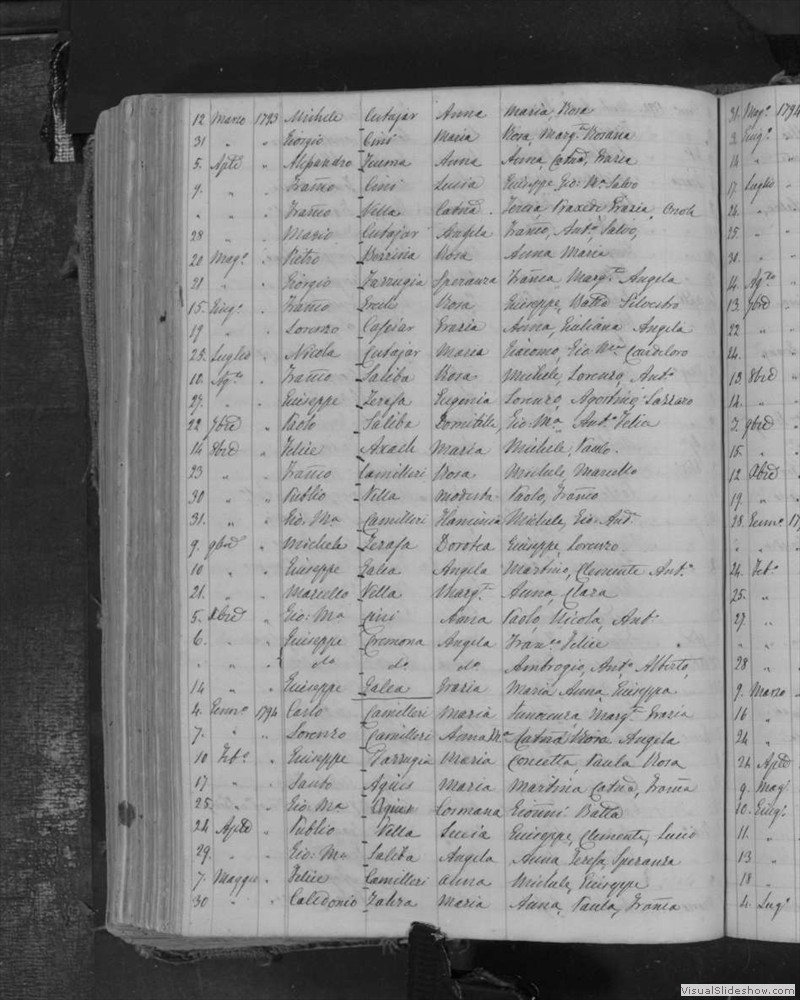 12 Marzo 1793 Michele Cutajar Anna Maria, Rosa
31 " " Giorgio Cini Maria Rosa, Marg.ta Rosaria
5. Aple " Alessandro Anna Anna, Catna, Grazia
9. " " Franco Cini Lucia Giuseppe Gio: Ma Salvo
" " " Franco Vella Catna Teresa Grazia
28 " " Mario Cutajar Angela Franco, Anto Salvo,
20 Mago " Pietro Rosa Anna Maria
21 " " Giorgio Farrugia Speranza Franca Margta Angela
15. Giugo " Franco Rosa Giuseppe, Batta Silvestro
19 " " Lorenzo Grazia Anna, Giuliana Angela
25. Luglio " Nicola Cutajar Maria Giacomo, Gio: Ma
10. Agto " Franco Saliba Rosa Michele, Lorenzo, Anto
27. " " Giuseppe Zerafa Eugenia Lorenzo, Agostino,
22 7bre " Paolo Saliba Domitilla, Gio: Ma Anto Felice
14 8bre " Felice Axach Maria Michele, Paolo.
23 " " Franco Camilleri Rosa Michele Marcello
30 " " Publio Vella Modesta Paolo, Franco
31. " " Gio: Ma Camilleri Flaminia Michele, Gio: And.
9. 9bre " Michele Zerafa Dorotea Giuseppe, Lorenzo.
10 " " Giuseppe Galea Angela Martino, Clemente Anto
21. " " Marcello Vella Margta Anna, Clara
5. Xbre " Gio: Ma Cini Anna Paolo, Nicola Anto
6. " " Giuseppe Cremona Angela Franco Felice
" " " do do do Ambrogio, Anto Alberto,
14 " " Giuseppe Galea Grazia Maria Anna, Giuseppa
4. Genno 1794 Carlo Camilleri Maria Innocenza Margta Grazia
7. " " Lorenzo Camilleri Anna Ma Catna Rosa Angela
10 Febo " Giuseppe Farrugia Maria Concetta, Paula Rosa
17 " " Santo Agius Maria Martina Catna, Franca
25. " " Gio: Ma Agius Germana Gioanni Batta
24 Aple " Publio Vella Lucia Giuseppe, Clemente, Lucio
29. " " Gio: Ma Saliba Angela Anna Teresa, Speranza
7. Maggio " Felice Camilleri Anna Michele, Giuseppe
30 " " Calcedonio Zahra Maria Anna, Paula, Franca
31. Mago 1794
3. Giugo "
14 "
17. Luglio "
24. " "
25. " "
30. " "
14. Agto "
13. 7bre "
22 "
24. "
13 8bre
14. "
7. 9bre
15. "
12 Xbre
19 "
28. Genno
" "
24. Febo
25. "
27. "
28 "
9. Marzo
16 "
24 "
24 Aple
9. Mago
10. Giugo
11. "
13 "
18 "
4. Lugo
VisualSlideshow.com